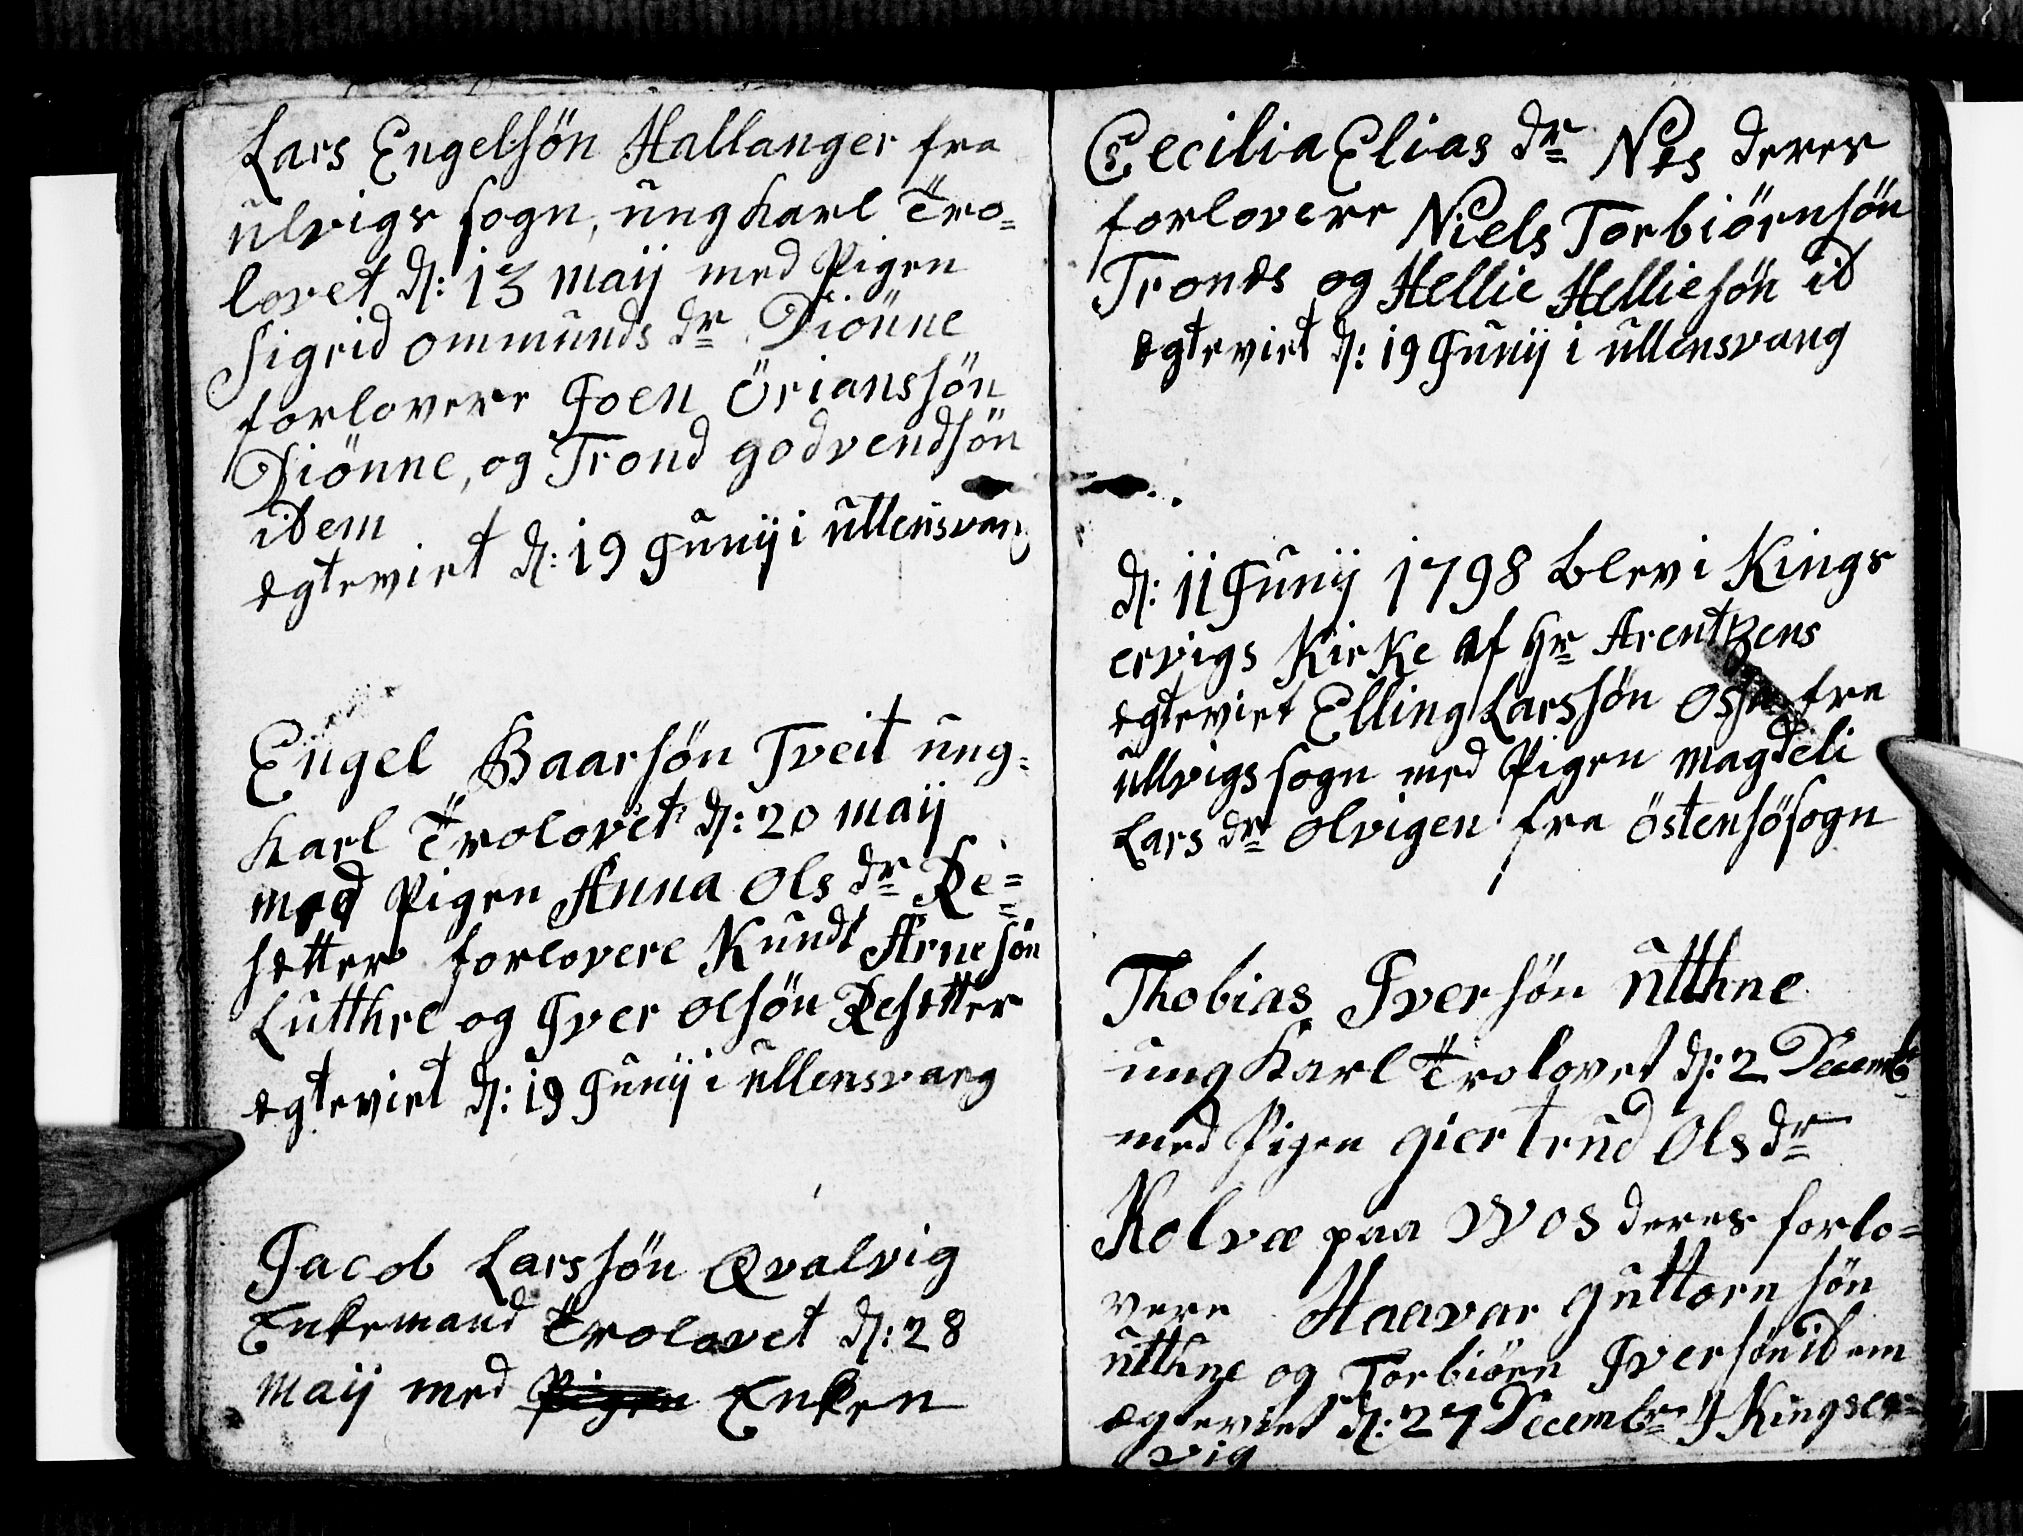 Lars Engelsön Hallanger fra
ulvigs sogn, ungkarl Tro=
lovet d: 13 maij med Pigen
Sigrid ommunds dr Diönne
forlovere Joen Örianssön
Diönne, og Trond godvendsön
idem
egteviet d: 19 Junij i ullensvang
Engel Baarsön Tveit ung=
karl Trolovet d: 20 maij
med Pigen Anna Ols dr Re=
setter forlovere Kundt Arnesön
Lutthre og Iver olsön Resetter
egteviet d: 19 Junij i ullensvang
Jacob Larssön Qvalvig
Enkemand Trolovet d: 28
maij med Pigen Enken
Cecilia Elias dr Nes deres
forlovere Niels Torbiörnsön
Tronds og Hellie Helliesön id
egteviet d: 19 Junij i ullensvang
d: 11 Junij 1798 blev i Kings
ervigs Kirke af Hr Arentzens
egteviet Elling Larssön Osse fra
ullvigs sogn med Pigen magdeli
Lars dr olvigen fra östensösogn
Thobias Iversön utthne
ungkarl Trolovet d: 2 Decemb
med Pigen giertrud Ols dr
Kolvæ paa Wos deres forlo=
vere Haavar guttornsön
utthne og Torbiörn Iversön idem
ægteviet d: 27 Decembr J Kingser=
vig